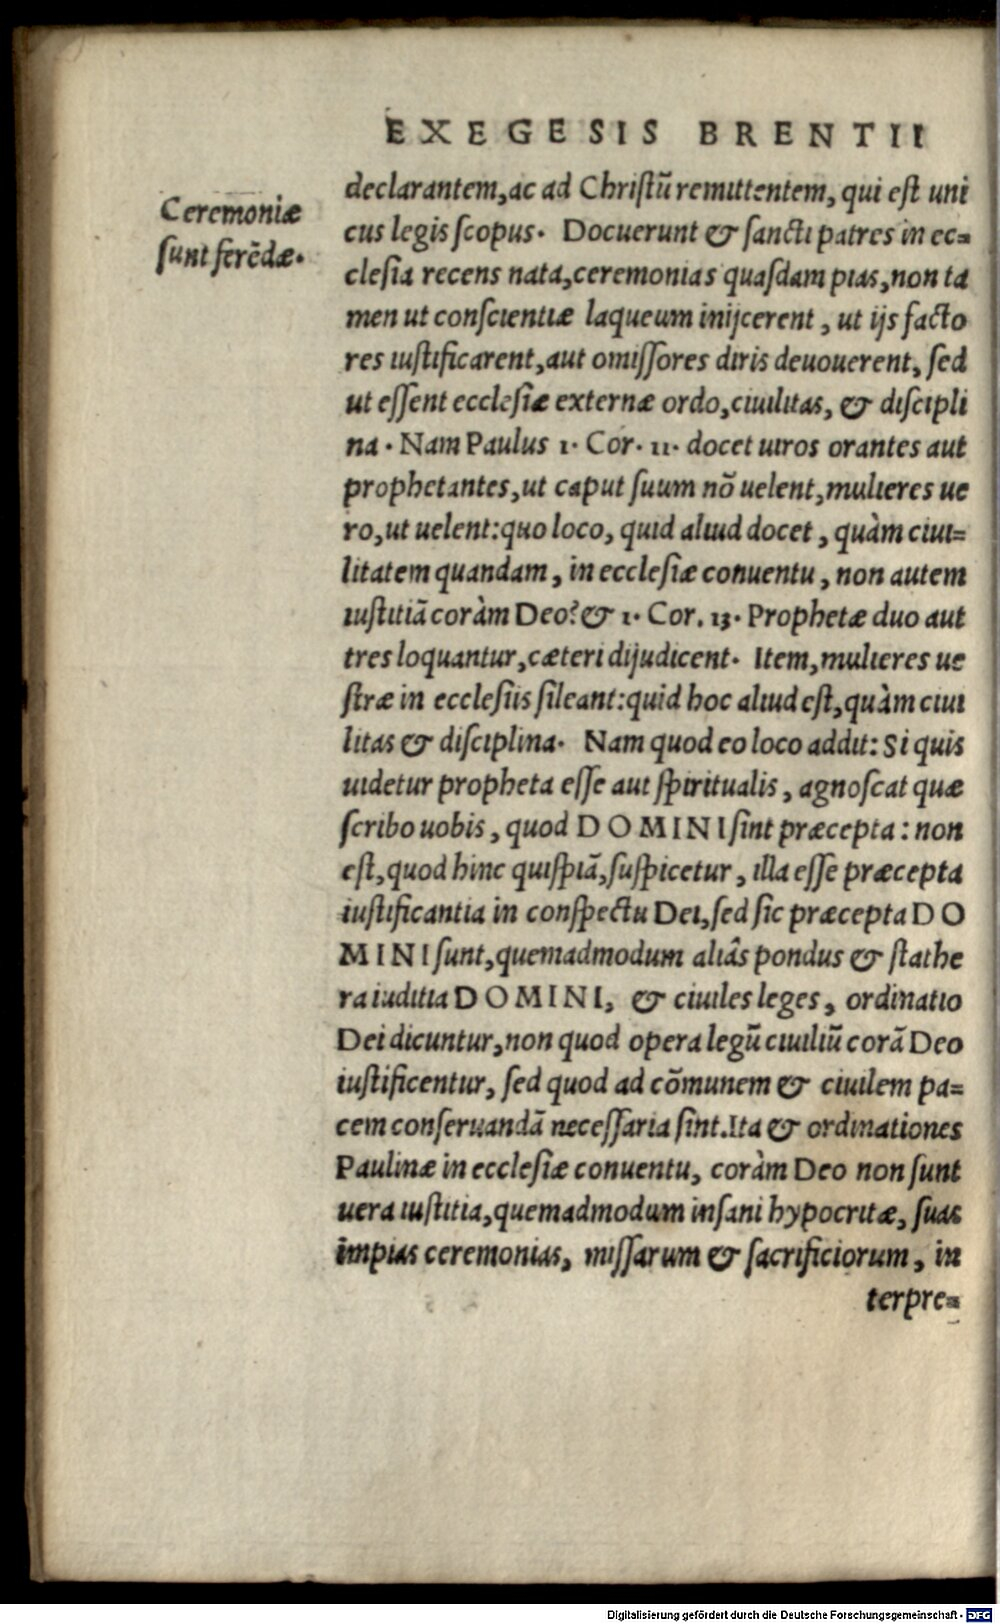 EXEGESIS BRENTII
Ceremoniæ
sunt ferẽdæ.
declarantem, ac ad Christũ remittentem, qui est uni
cus legis scopus. Docuerunt & sancti patres in ec=
clesia recens nata, ceremonias quasdam pias, non ta
men ut conscientiæ laqueum inijcerent, ut ijs facto
res iustificarent, aut omissores diris deuouerent, sed
ut essent ecclesiæ externæ ordo, ciuilitas, & discipli
na. Nam Paulus 1. Cor. 11. docet uiros orantes aut
prophetantes, ut caput suum nõ uelent, mulieres ue
ro, ut uelent: quo loco, quid aliud docet, quàm ciui=
litatem quandam, in ecclesiæ conuentu, non autem
iustitiã coràm Deo? & 1. Cor. 13. Prophetæ duo aut
tres loquantur, cæteri dijudicent. Item, mulieres ue
stræ in ecclesiis sileant: quid hoc aliud est, quàm ciui
litas & disciplina. Nam quod eo loco addit: Si quis
uidetur propheta esse aut spiritualis, agnoscat quæ
scribo uobis, quod DOMINI sint præcepta: non
est, quod hinc quispiã, suspicetur, illa esse præcepta
iustificantia in conspectu Dei, sed sic præcepta DO
MINI sunt, quemadmodum aliâs pondus & stathe
ra iuditia DOMINI, & ciuiles leges, ordinatio
Dei dicuntur, non quod opera legũ ciuiliũ corã Deo
iustificentur, sed quod ad cõmunem & ciuilem pa=
cem conseruandã necessaria sint. Ita & ordinationes
Paulinæ in ecclesiæ conuentu, coràm Deo non sunt
uera iustitia, quemadmodum insani hypocritæ, suas
impias ceremonias, missarum & sacrificiorum, in
terpre=
Digitalisierung gefördert durch die Deutsche Forschungsgemeinschaft - DFG